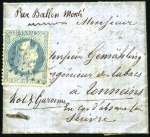 Par Ballon Monté
Monsieur
Monsieur Gemähling
Ingénieur de tabacs
à Tonneins
Lot & Garonne
en cas d'absence
suivre